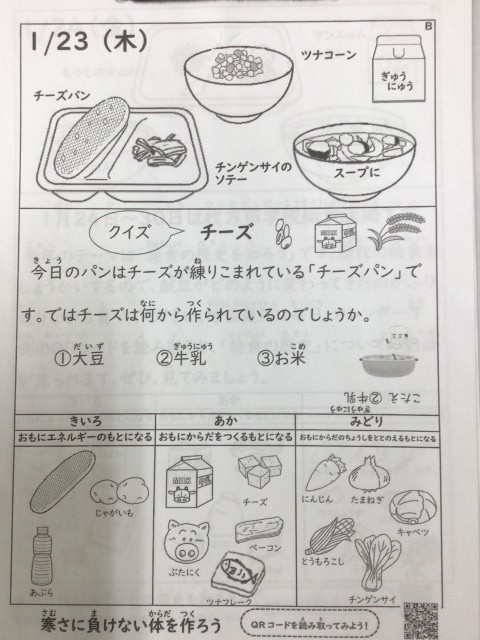 B
1/23（木）
ツナコーン
ぎゅう
にゅう
チーズパン
チンゲンサイの
ソテー
スープに
クイズ
チーズ
今日のパンはチーズが練りこまれている「チーズパン」で
す。ではチーズは何から作られているのでしょうか。
①大豆 ②牛乳 ③お米
こたえ ②牛乳
きいろ
おもにエネルギーのもとになる
じゃがいも
あぶら
あか
おもにからだをつくるもとになる
チーズ
ベーコン
ぶたにく
ツナフレーク
みどり
おもにからだのちょうしをととのえるもとになる
にんじん
たまねぎ
キャベツ
とうもろこし
チンゲンサイ
寒さに負けない体を作ろう
QRコードを読み取ってみよう！